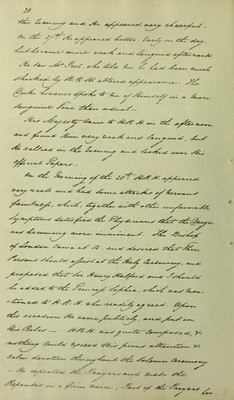 28
this Evening and He appeared very cheerful.
On the 27th He appeared better Early in the day
but became more weak and languid afterwards.
He saw Mr Peel, who told me he had been much
shocked by H.R.H. altered appearance. The
Duke however spoke to me of Himself in a more
sanguine Tone than usual.
His Majesty came to H.R.H. in the afternoon
and found Him very weak and languid, but
He rallied in the Evening and looked over His
official Papers.
On the Morning of the 28th H.R.H. appeared
very weak and had some attacks of nervous
faintness, which, together with other unfavorable
Symptoms satisfied the Physicians that the Danger
was becoming more imminent. The Bishop
of London came at 12, and desired that Three
Persons should assist at the Holy Ceremony, and
proposed that Sir Henry Halford and I should
be added to the Princess Sophia, which was men-
tioned to H.R.H. who readily agreed. Upon
this occasion He came publickly, and put on
His Robes — H.R.H. was quite Composed, &
nothing could exceed His pious attention &
calm devotion throughout the Solemn Ceremony
— He repeated the Prayers and made the
Responses in a firm voice. Part of the Prayers for